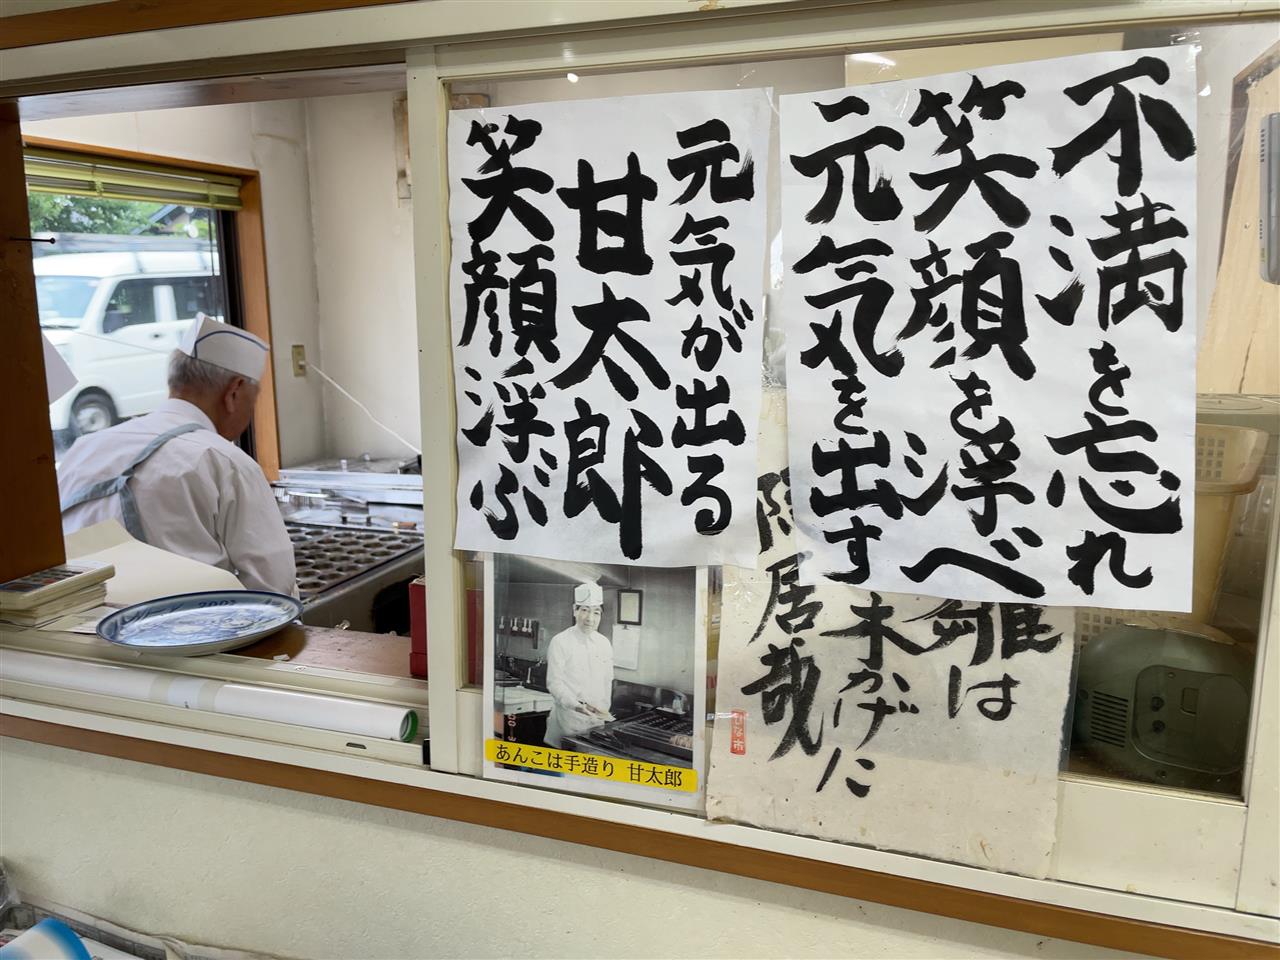 不満を忘れ
笑顔を浮べ
元気を出す
元気が出る
甘太郎
笑顔浮ぶ
雛は
木かげに
隠居哉
ひな市
あんこは手造り 甘太郎